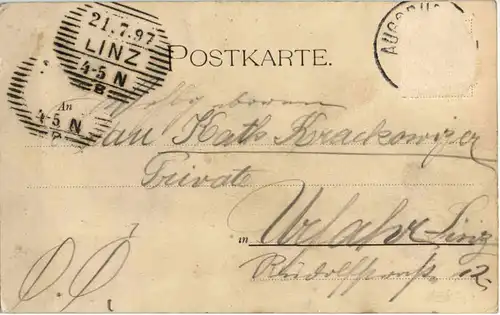 21.7.97
LINZ
4-5 N
8
POSTKARTE.
An
4-5 N
Kath. Krackowizer
Private
in Urfahr-Linz
Rudolfstraße 12
O. Ö.